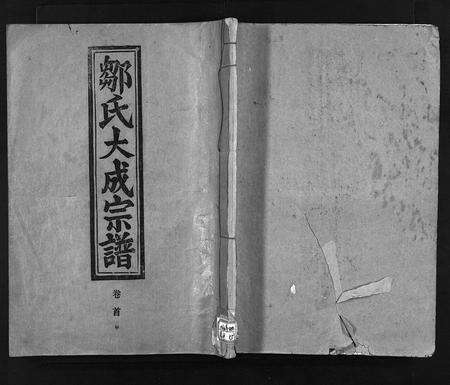 鄒氏大成宗譜
卷首